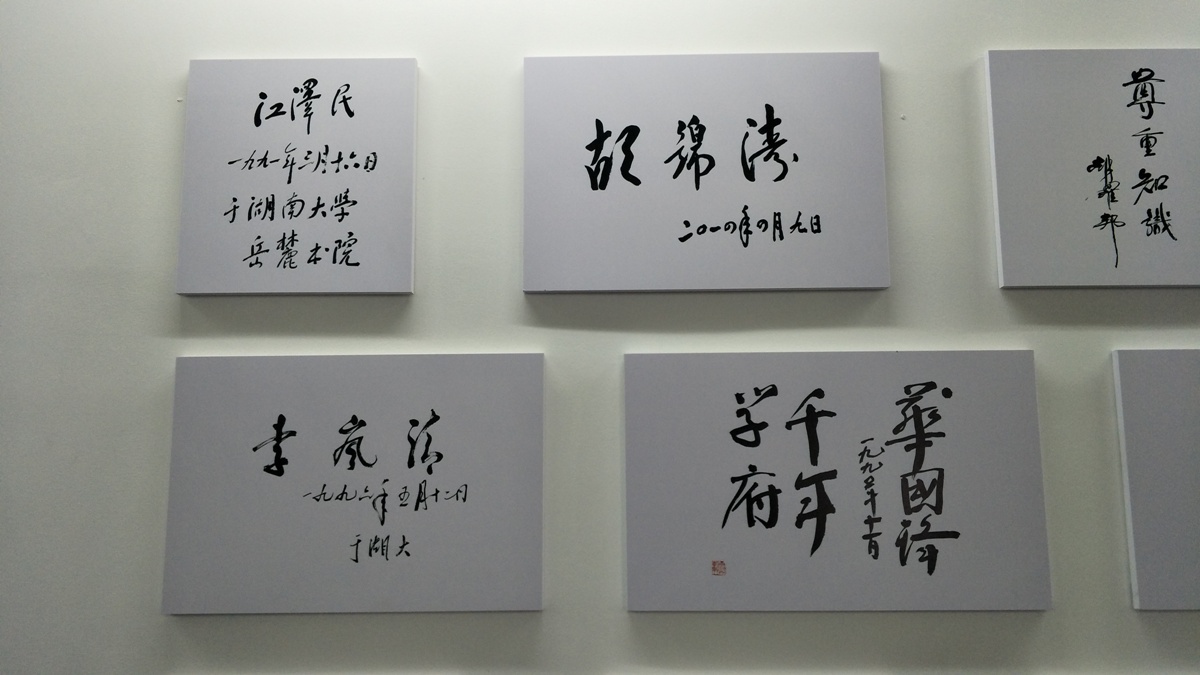 江澤民
一九九一年三月十六日
于湖南大學
岳麓书院
胡錦濤
二〇一〇年四月九日
尊重知識
胡耀邦
李嵐清
一九九六年五月十二日
于湖大
華國鋒
一九九五年十一月
千年
学府